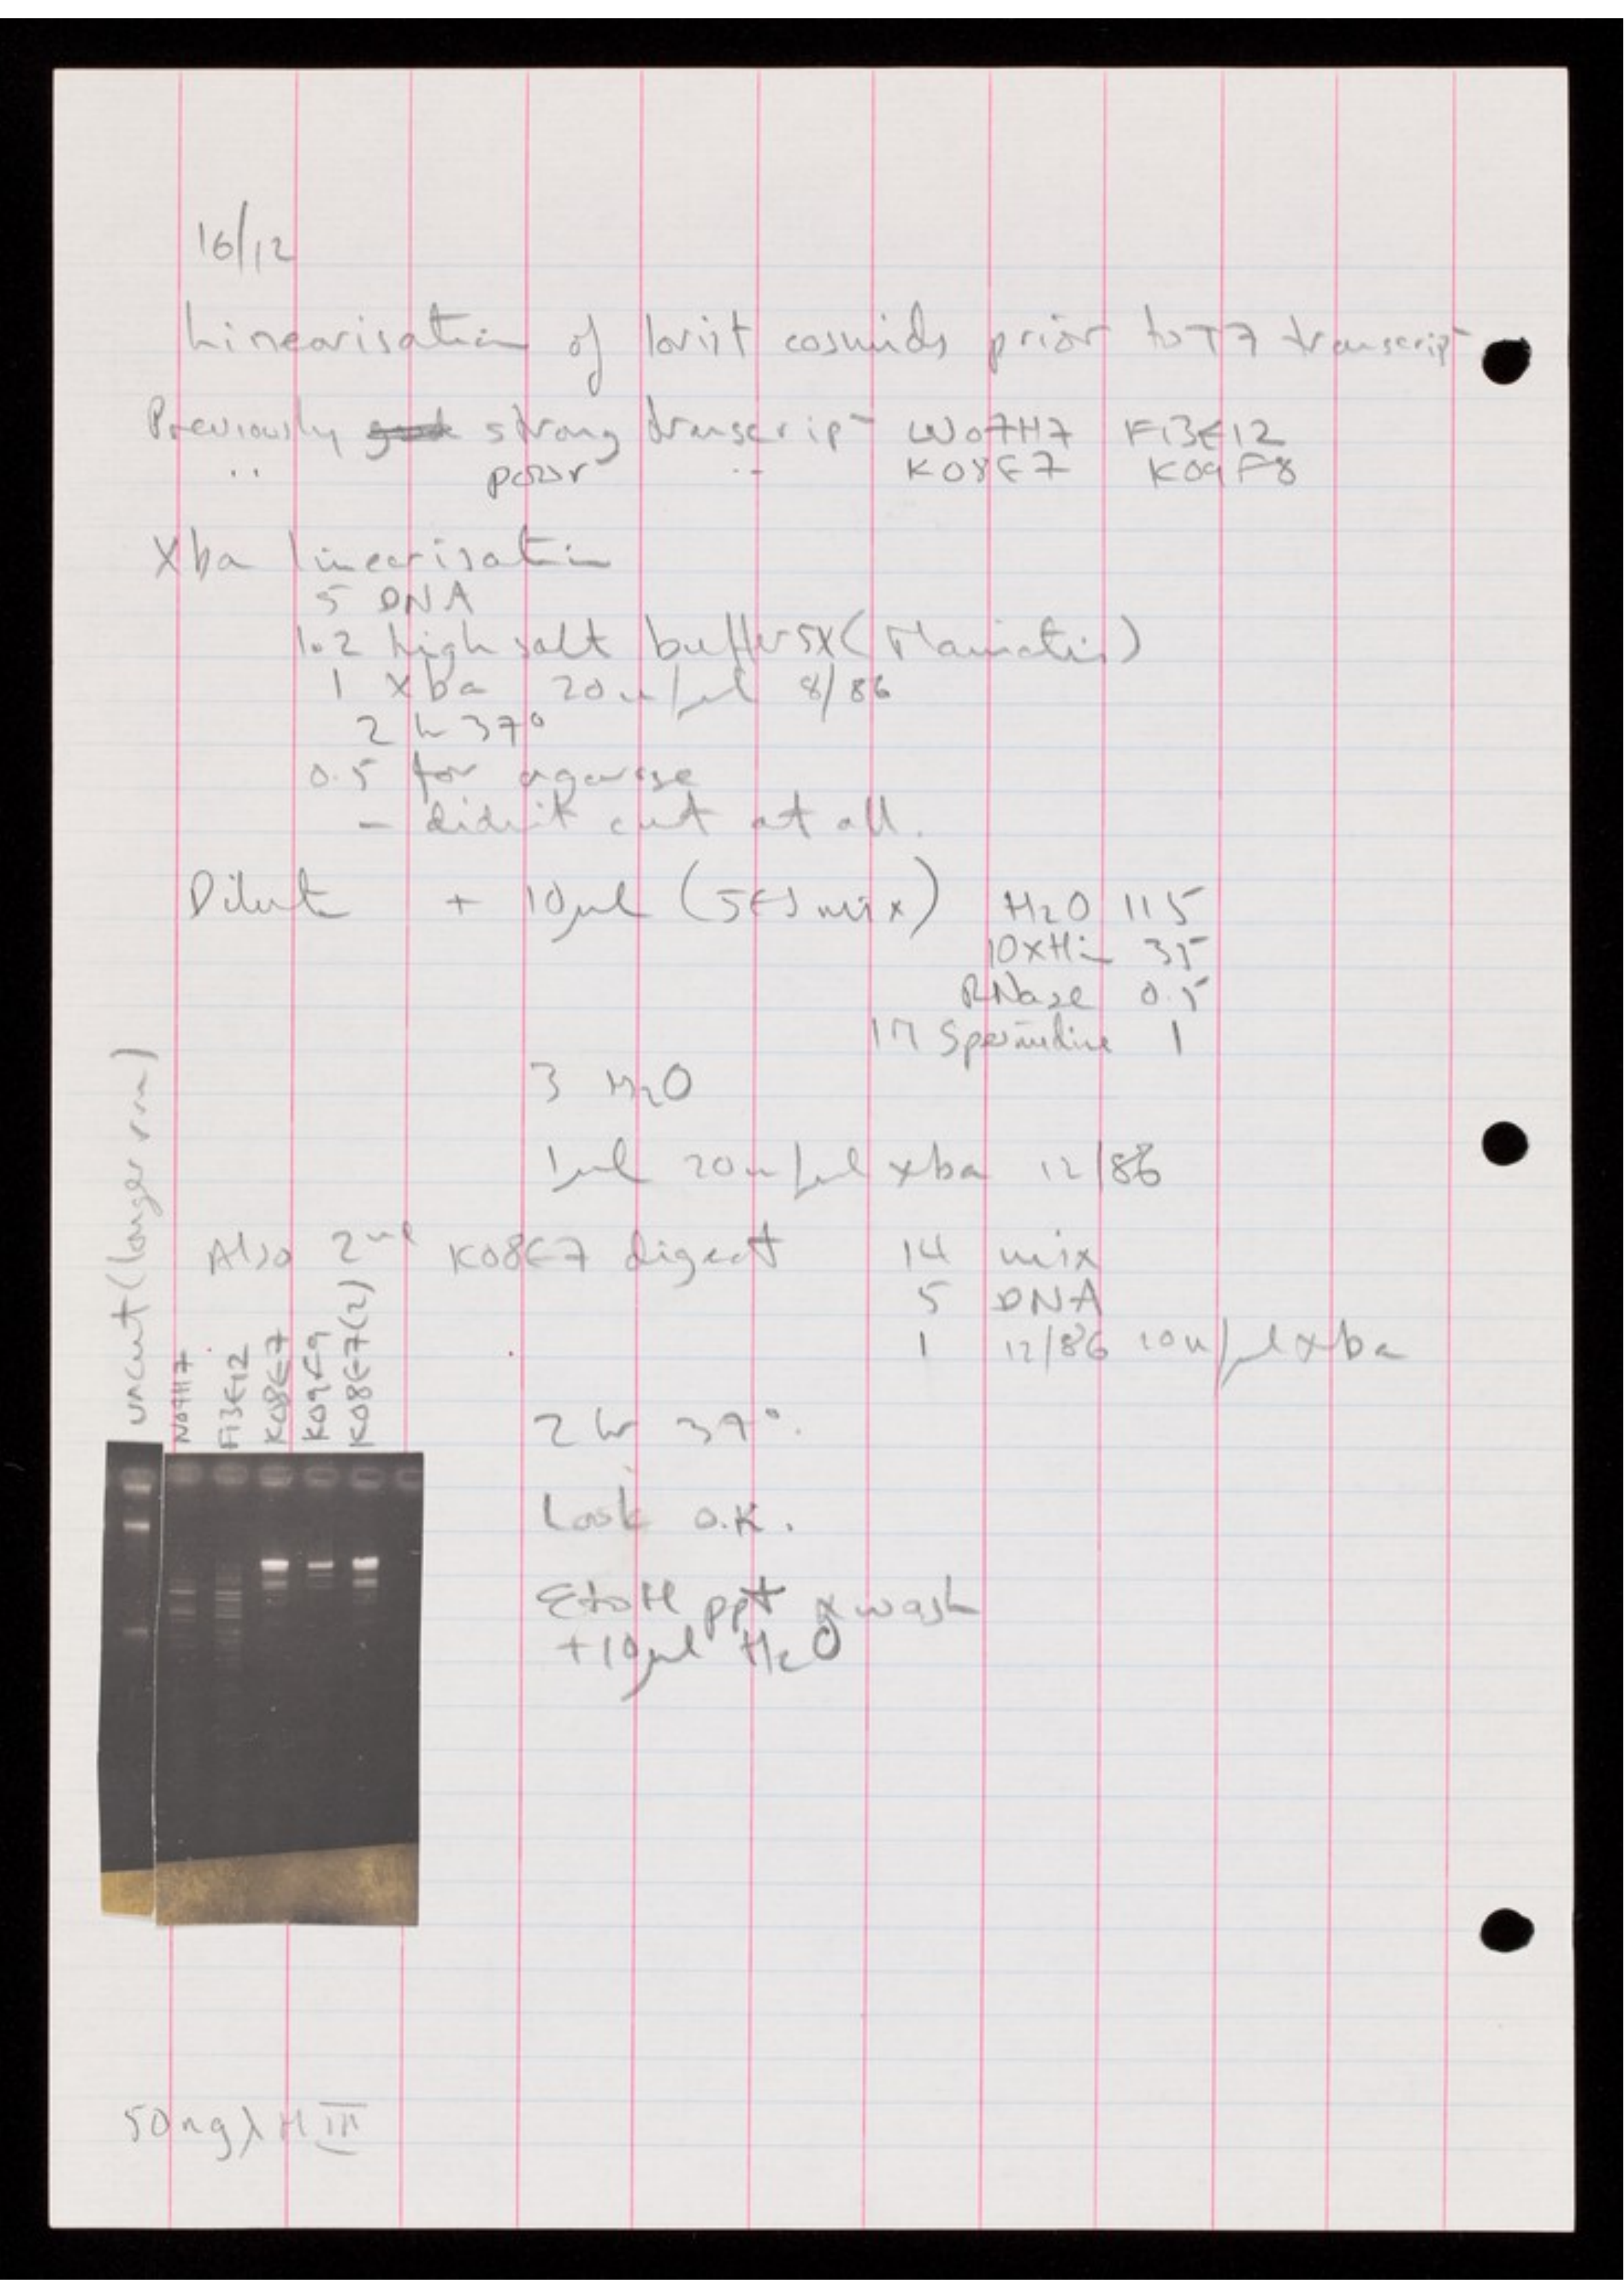 16/12
Linearisation of lorist cosmids prior to T7 transcript
Previously strong transcript W07H7 F13E12
" poor " K08E7 K09F8
Xba linearisation
5 DNA
1.2 high salt buffer 5X (Maniatis)
1 xba 20u/μl 8/86
2 h 37°
0.5 for agarose
- didn't cut at all.
Dilute + 10μl (SEJ mix) H2O 115
10xHin 35
RNase 0.5
1M Spermidine 1
3 H2O
1μl 20u/μl xba 12/86
Also 2nd K08E7 digest 14 mix
5 DNA
1 12/86 10u/μl xba
2 hr 37°.
Look O.K.
EtOH ppt & wash
+10μl H2O
uncut (longer run)
W07H7
F13E12
K08E7
K09F9
K08E7(2)
50ng λ H III